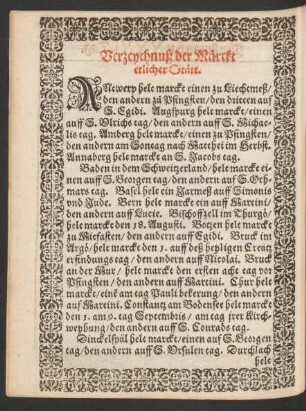 Verzeychnuß der Märckt
etlicher Stätt.
ANtwerp helt märckt einen zu Liechtmeß/
den andern zu Pfingsten/den dritten auff
S. Egidi. Augspurg helt märckt/einen
auff S. Vlrichs tag/den andern auff S. Michae-
lis tag. Amberg helt märckt/einen zu Pfingsten/
den andern am Sontag nach Matthei im Herbst.
Annaberg helt märckt an S. Jacobs tag.
Baden in dem Schweitzerland/helt märckt ei-
nen auff S. Georgen tag/den andern auff S. Oth-
mars tag. Basel helt ein Jarmeß auff Simonis
vnd Jude. Bern helt märckt ein auff Martini/
den andern auff Lucie. Bischoffzell im Thurgö/
helt märckt den 18. Augusti. Botzen helt märckt
zu Mitfasten/den andern auff Egidi. Bruck im
Argö/helt märckt den 1. auff deß heyligen Creutz
erfindungs tag/den andern auff Nicolai. Bruck
an der Mur/ helt märckt den ersten acht tag vor
Pfingsten / den andern auff Martini. Chur helt
märckt/eins am tag Pauli bekerung/den andern
auff Martini. Constantz am Bodensee helt märckt
den 1. am 9. tag Septembris/am tag jrer Kirch-
weyhung/den andern auff S. Conrads tag.
Dinckelspül helt märckt/einen auff S. Georgen
tag/den andern auff S. Vrsulen tag. Durchlach
helt